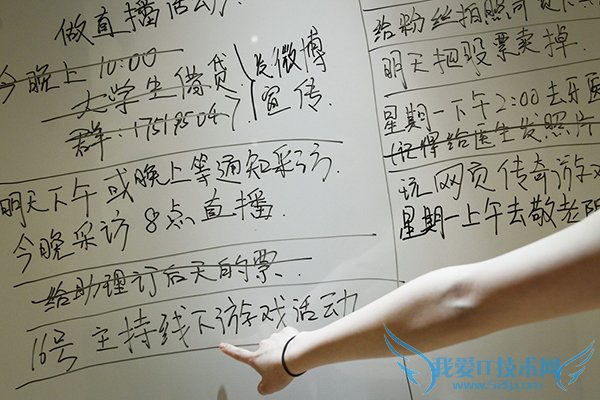 做直播活动.
今晚上 10:00
大学生借贷
群:175195047
发微博
宣传.
明天下午或晚上等通知采访.
今晚采访 8点直播.
给助理订后天的票.
16号 主持线下游戏活动
给粉丝拍照
明天把股票卖掉.
星期一下午2:00去
(记得给医生发照片
玩网页传奇游戏
星期一上午去敬老院
我爱IT技术网